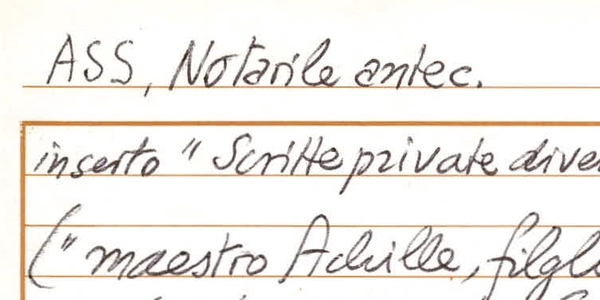 ASS, Notarile antec.
inserto " Scritte private diver
(" maestro Achille, filgl